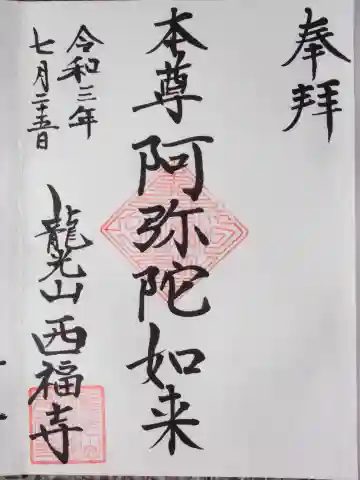 奉拝
本尊阿弥陀如来
令和三年
七月二十五日
龍光山西福寺